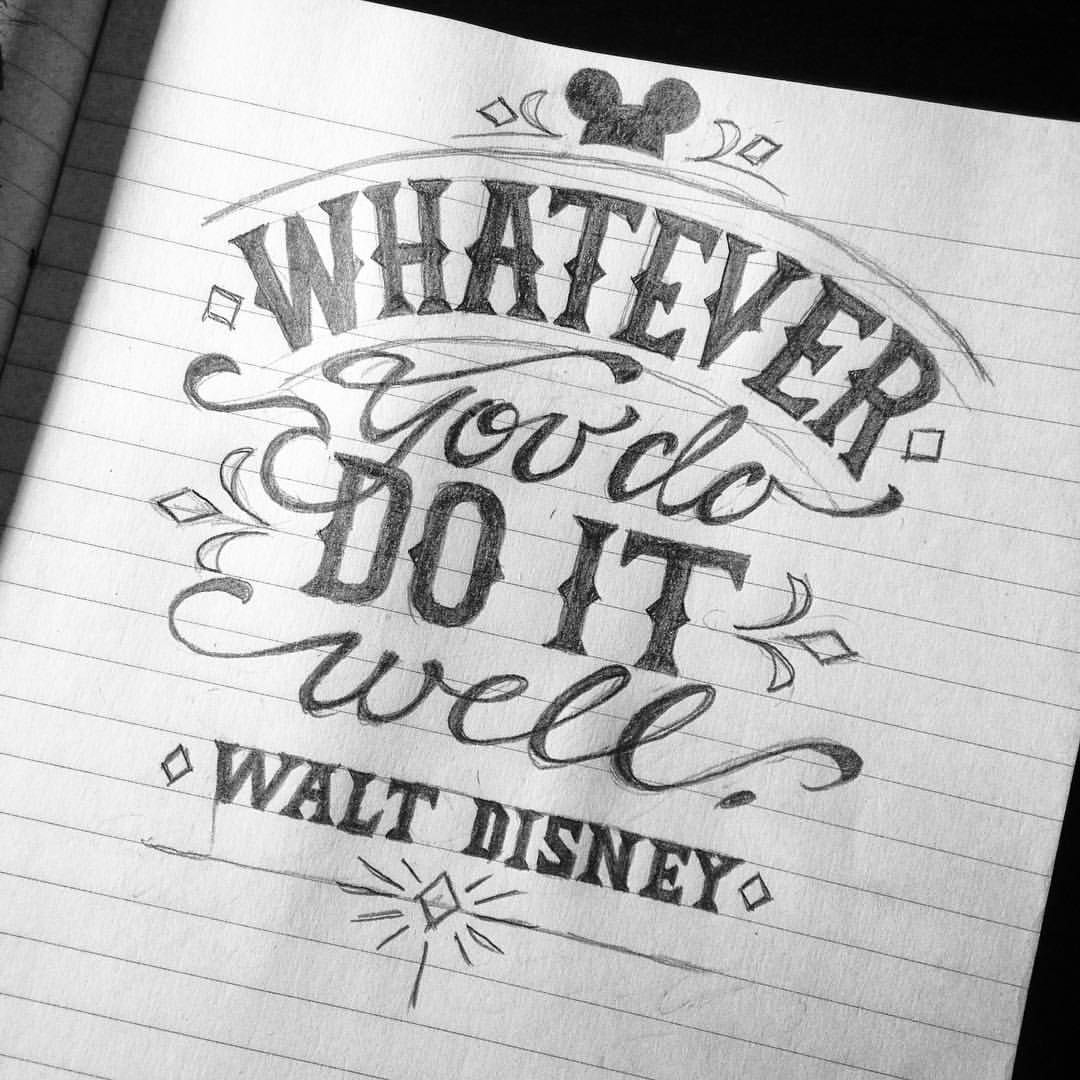 WHATEVER
you do
DO IT
well.
WALT DISNEY